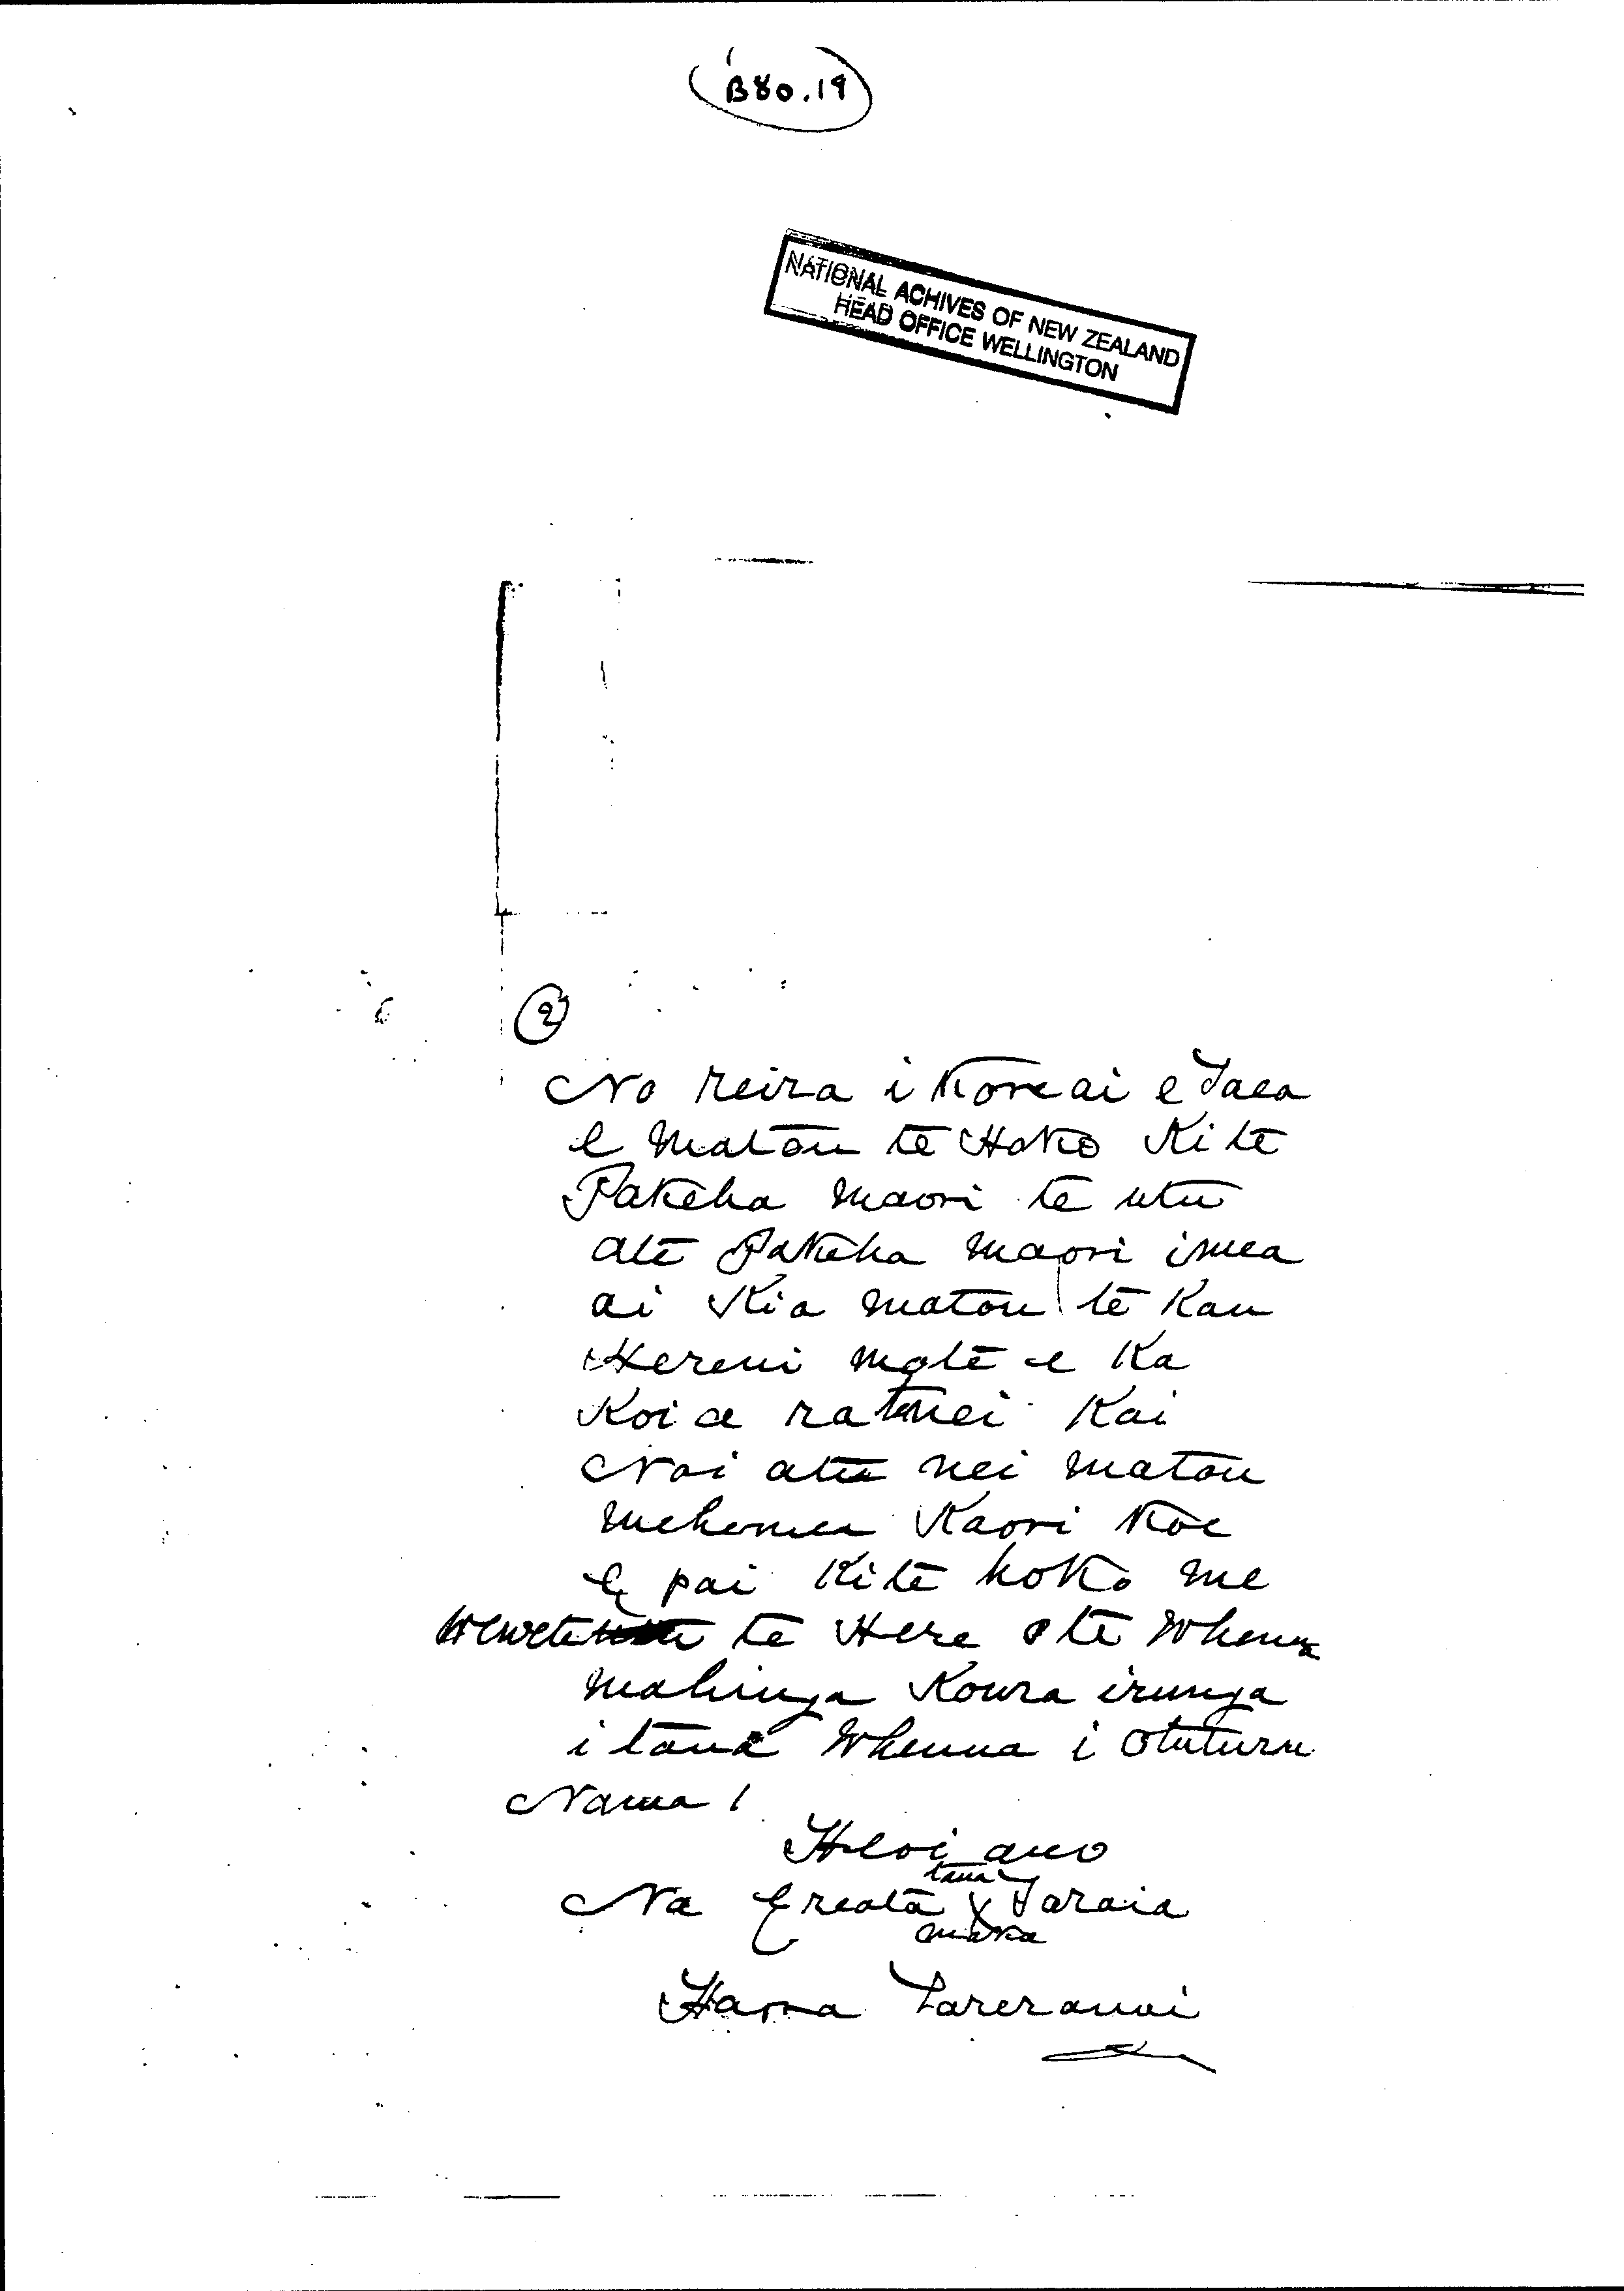 B80.19
NATIONAL ACHIVES OF NEW ZEALAND
HEAD OFFICE WELLINGTON
2
No reira i Kore ai e Taea
e Matou te Hoko Ki te
Pakeha maori te utu
ate Pakeha maori imea
ai Kia matou te Kau
Hereni mote e Ka
Koi a ratnei Kai
Noi atu nei matou
mehemea Kaori Koe
e pai Kite hoko me
wewete te Here o te Whenua
mahinga Koura irunga
i taua Whenua i Otuturu
Nama 1
Heoi ano
tana
Na Ereata x Taraia
maka
Hama Tareranui